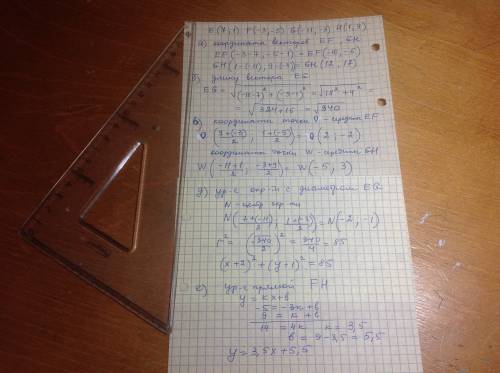 E(7,1) F(-3,-5) G(-11,-3) H(1,9)
а) координаты векторов EF, GH
EF(-3-7, -5-1) = EF(-10,-6)
GH(1-(-11), 9-(-3)) = GH(12, 12)
б) длину вектора EG
EG = √((-11-7)² + (-3-1)²) = √(18² + 4²) =
= √(324+16) = √340
в) координаты точки O - середин EF
O ((7+(-3))/2, (1+(-5))/2) = O(2; -2)
координаты точки W - середин GH
W ((-11+1)/2, (-3+9)/2), W(-5, 3)
д) ур-е окр-ти с диаметром EG
N - центр окр-ти
N((7+(-11))/2, (1+(-3))/2) = N(-2, -1)
r² = (√340/2)² = 340/4 = 85
(x+2)² + (y+1)² = 85
ур-е прямой FH
y = kx+b
-5 = -3k + b
9 = k + b
14 = 4k k = 3,5
b = 9-3,5 = 5,5
y = 3,5x + 5,5